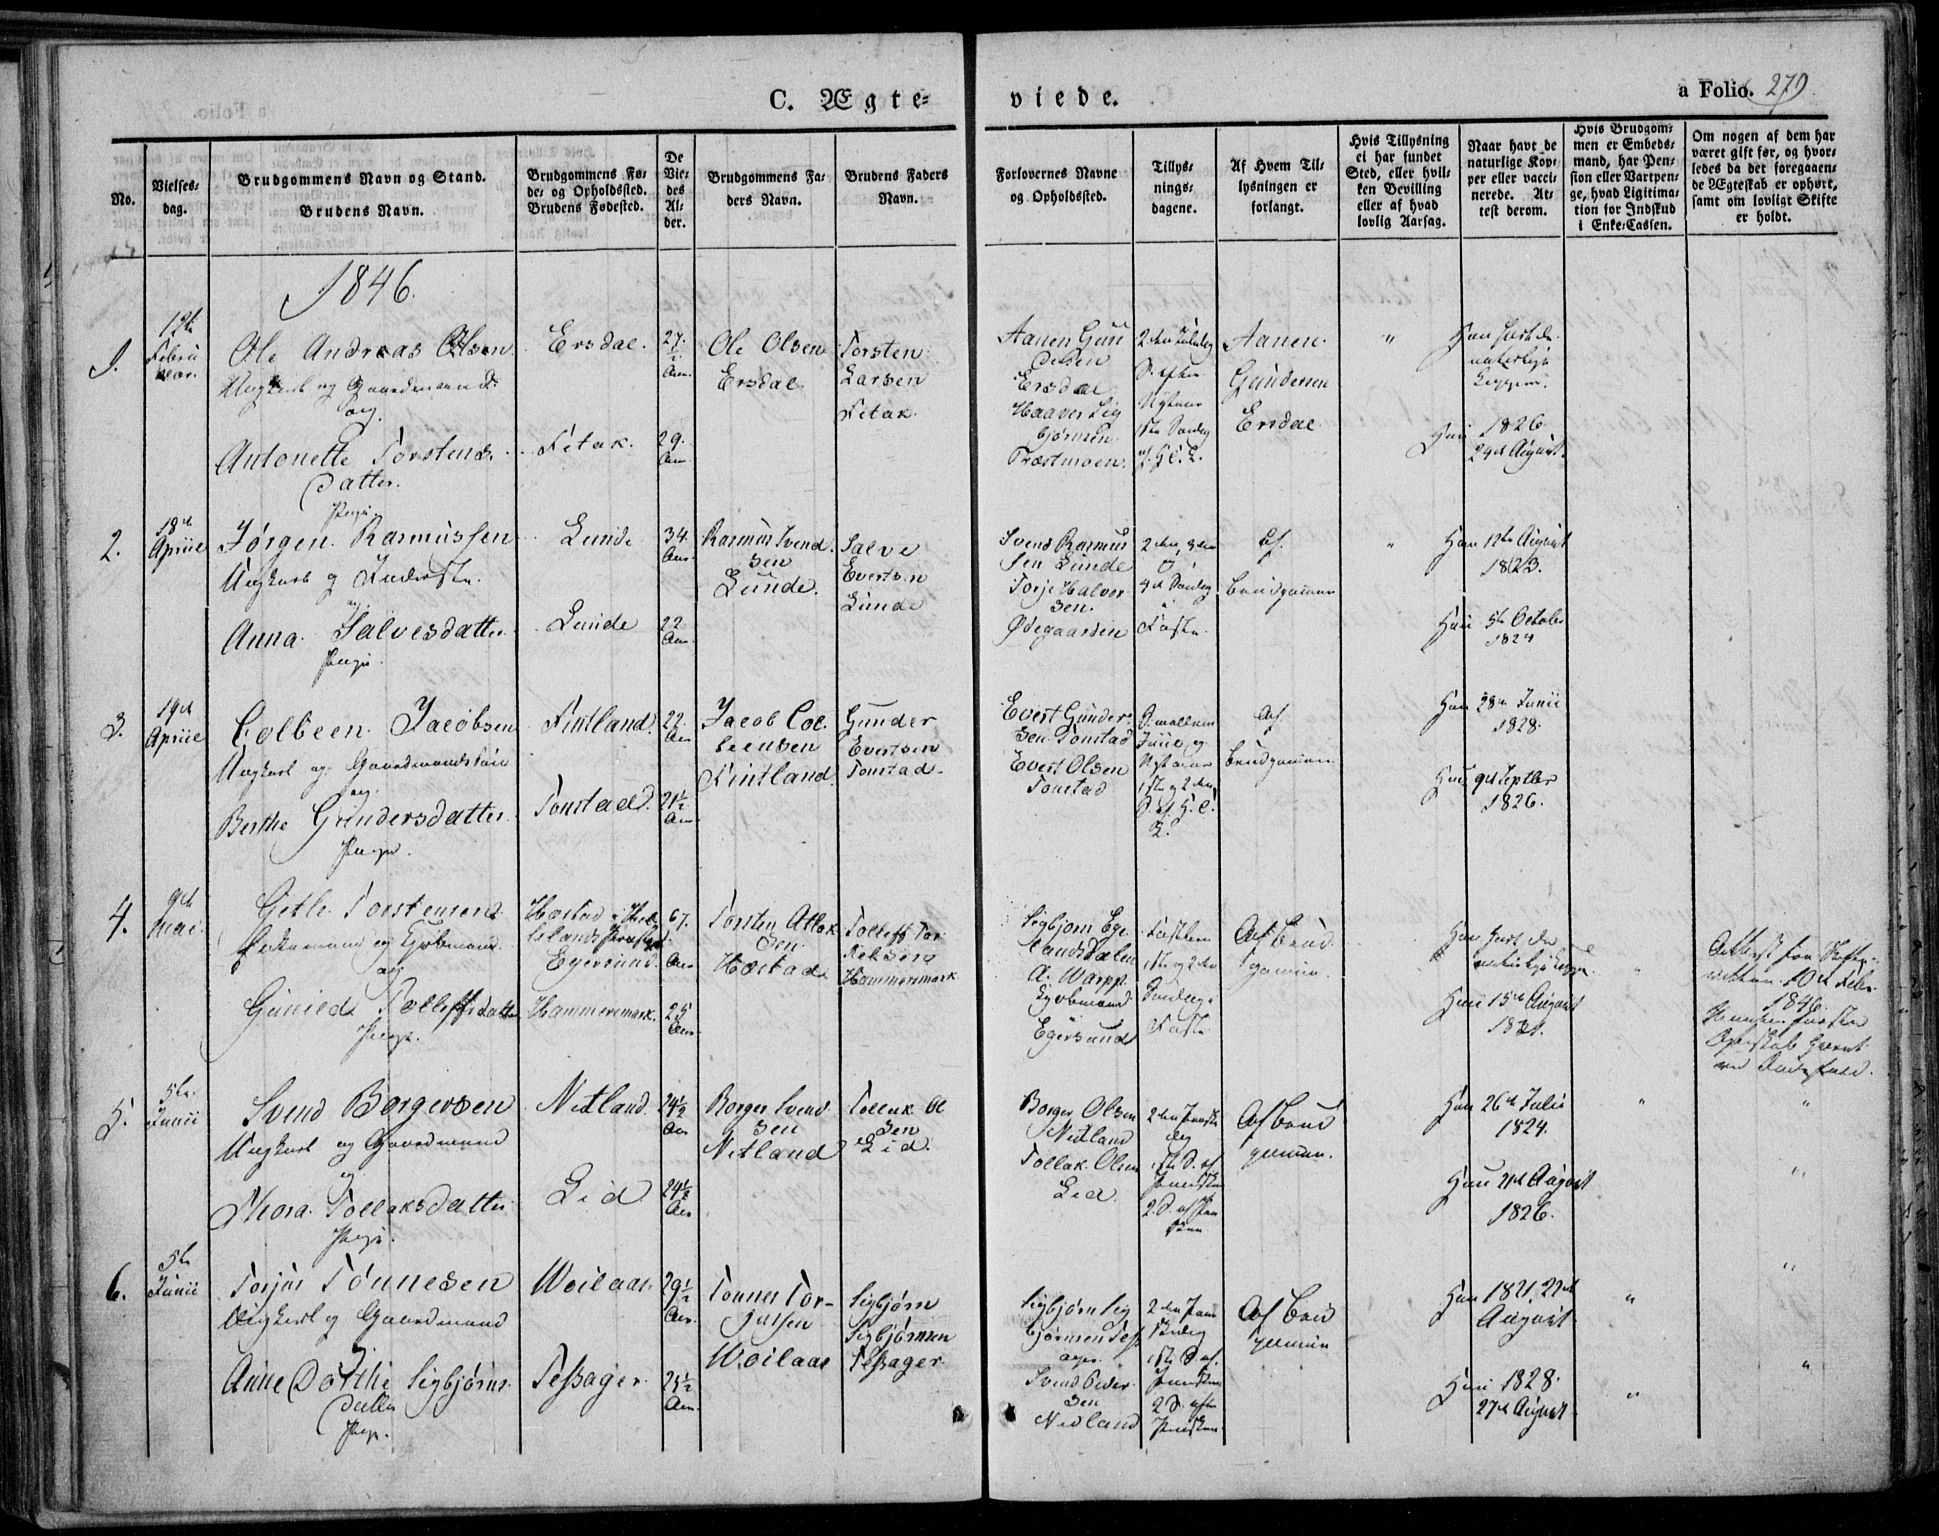 C. Ægte-
viede.
a Folio. 279.
No.
Vielses-
dag.
Brudgommens Navn og Stand.
Brudens Navn.
Brudgommens Fø-
de- og Opholdssted.
Brudens Fødested.
De
Vie-
des
Al-
der.
Brudgommens Fa-
ders Navn.
Brudens Faders
Navn.
Forlovernes Navne
og Opholdssted.
Tillys-
nings-
dagene.
Af Hvem Til-
lysningen er
forlangt.
Hvis Tillysning
ei har fundet
Sted, eller hvil-
ken Bevilling
eller af hvad
lovlig Aarsag.
Naar havt de
naturlige Kop-
per eller vacci-
nerede. At-
test derom.
Hvis Brudgom-
men er Embeds-
mand, har Pen-
sion eller Vartpen-
ge, hvad Ligitima-
tion for Indskud
i Enke-Cassen.
Om nogen af dem har
været gift før, og hvor-
ledes da det foregaaen-
de Ægteskab er ophørt,
samt om lovligt Skifte
er holdt.
1846.
1.
Febru
Ole Andreas Olsen
Ungkarl og Gaardmand
og
Antonette Torstens
Datter.
Pige
Ersdal.
Fitak.
27
Aar.
29.
Aar
Ole Olsen
Ersdal
Torsten
Larsen
Fitak.
Aanen Gun
dersen
Ersdal
Haaver Sig
bjørnsen
Træstmoen.
2den Juledag
S. efter
Nytaar
1ste Søndag
Aanen
Gundersen
Ersdal
"
Han havt de
naturlige
Kopper.
Hun 1826
24d August
2.
18d
April
Jørgen Rasmussen
Ungkarl og Inderste.
og
Anna Salvesdatter
Pige.
Lunde
Lunde
34
Aar
22
Aar
Rasmus Svend
sen
Lunde.
Salve
Evertsen
Lunde
Svend Rasmus
sen Lunde
Torje Halvor
sen.
Ødegaarden
2den, 3die
og
4d Søndag
i
Faste.
Af
Brudgommen
"
Han 12te August
1823.
Hun 5te October
1824
3.
19d
April
Colbeen Jacobsen
Ungkarl og Gaardmandssøn
og
Berthe Gundersdatter
Pige.
Fintland.
Tonstad.
22
Aar
21½
Aar
Jacob Col
beensen
Fintland.
Gunder
Evertsen
Tonstad
Evert Gunder
sen Tonstad
Evert Olsen
Tonstad
S. mellem
Juul og
Nytaar
1ste og 2den
Af
Brudgommen.
Han 28de Junii
1828.
Hun 9d Septbr
1826.
4.
9d
Mai
Getle Torstensen
Enkemand og Kjøbmand.
og
Gunild Tollefsdatter
Pige.
Egersund.
Hammersmark.
67.
Aar
25
Aar
Torsten Atlak
sen
Hæstad
Tollef Tor
kelsen
Hammersmark
Sigbjørn Ege
landsdalen
A. Warpp
Kjøbmand
i
Egersund
1ste og 2den
Søndag i
Faste
Af Brud
gommen.
Han havt de
naturlige Kopper
Hun 15d August
1821.
"
Attest fra Skifte-
retten 10de Febr
1846
5.
5te
Junii
Svend Borgersen
Ungkarl og Gaardmand
og
Thora Tollaksdatter
Pige.
Netland
Lid
24½
Aar
24½
Aar
Borger Svend
sen
Netland
Tollak Ol
sen
Lid.
Borger Olsen
Netland
Tollak Olsen
Lid
2den Pintse
dag
1ste S. af
Pintsen
2. S. af Pin
tsen
Af Brud
gommen.
Han 26d Julii
1824.
Hun 21d August
1826.
"
"
"
6.
5te
Junii
Torjus Tønnesen
Ungkarl og Gaardmand
og
Anne Dorthe Sigbjørns
Datter
Pige.
Woilaas
Tessager
29½
Aar
25½
Aar
Tønnes Tor-
jussen
Woilaas
Sigbjørn
Sigbjørnsen
Tessager.
Sigbjørn Sig
bjørnsen Tess
ager.
Svend Peder
sen
Nedland
2den Pin
tsedag
1ste S. af
Pintsen
2 S. efter
Pintsen
Af Brud
gommen
Han 1821 22d
August
Hun 1828.
27d August
"
"
"
"